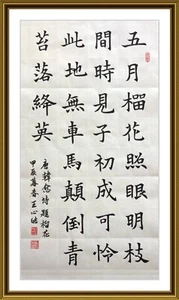 五月榴花照眼明枝
間時見子初成可怜
此地無車馬顛倒青
苔落絳英
唐韓愈詩題榴花
甲辰暮春王心